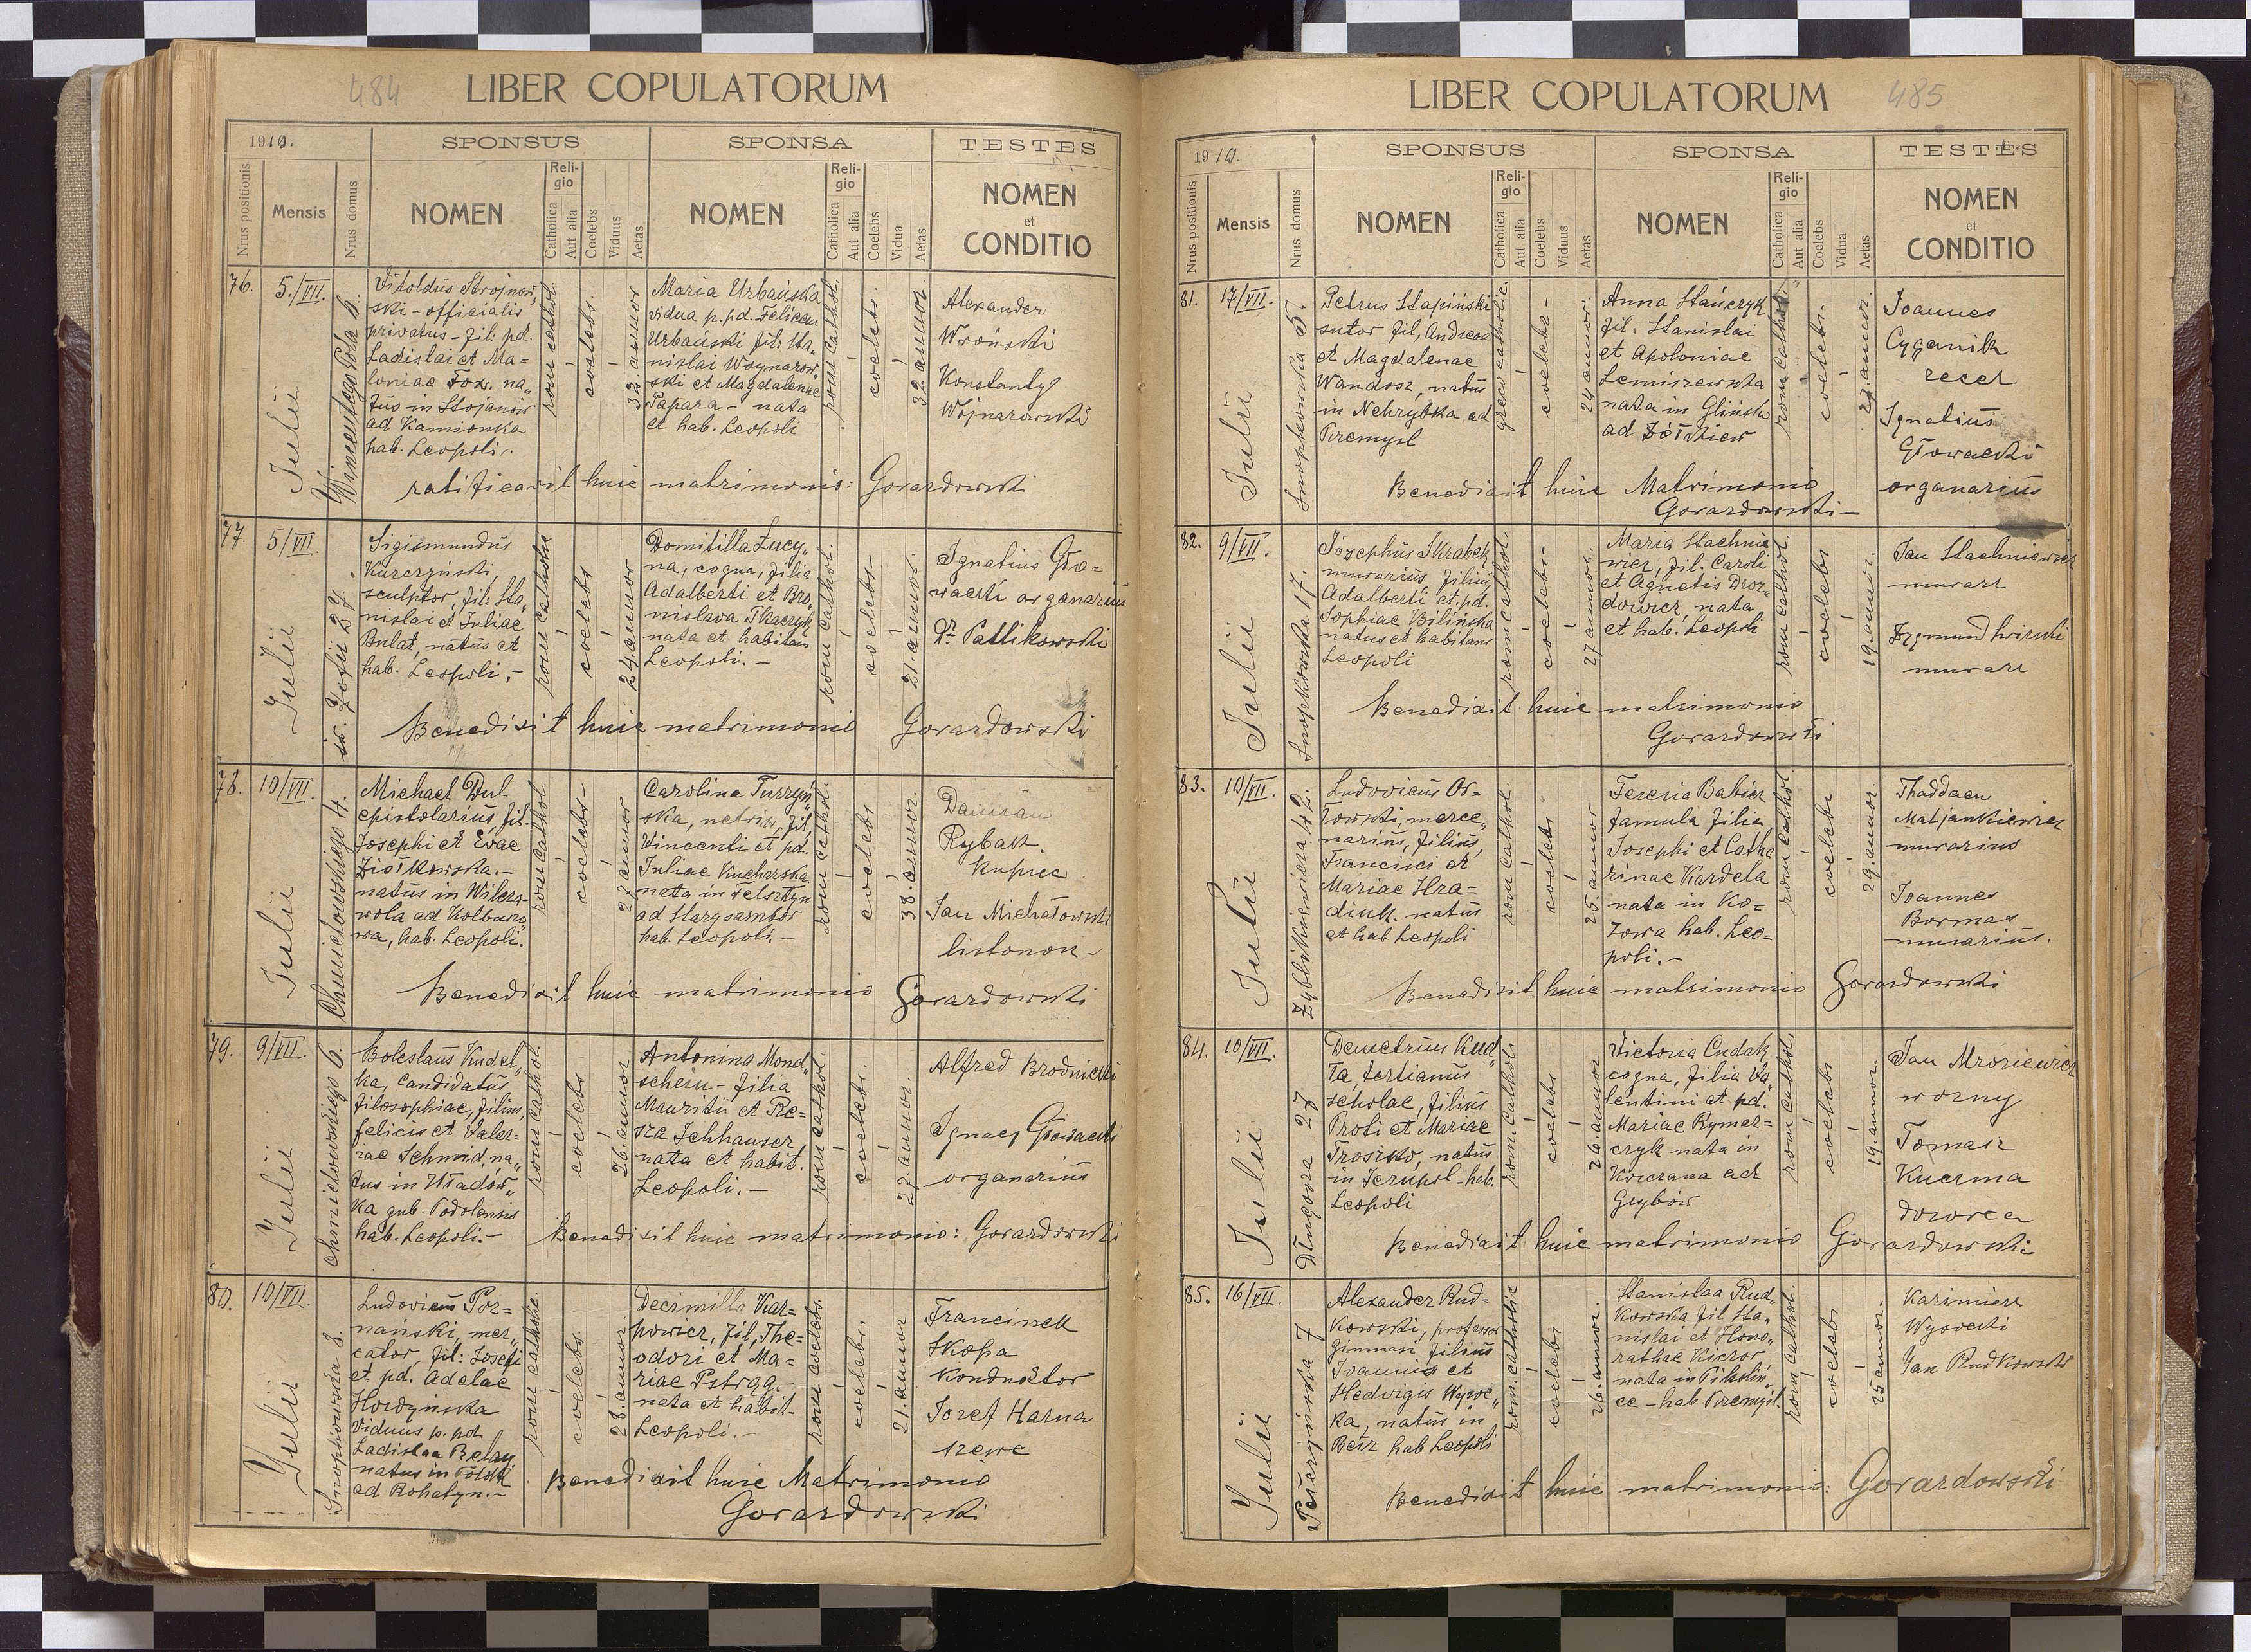 484
LIBER COPULATORUM
1910.
SPONSUS
SPONSA
TESTES
Nrus positionis
Mensis
Nrus domus
NOMEN
Religio
Catholica
Aut alia
Coelebs
Viduus
Aetas
NOMEN
Religio
Catholica
Aut alia
Coelebs
Vidua
Aetas
NOMEN
et
CONDITIO
76.
5./VII.
Julii
Wincentego Pola 6.
Vitoldus Strojnow„
ski - officialis
privatus - fil: pd.
Ladislai et Ma=
loniae Fox. na„
tus in Stojanow
ad Kamionka
hab. Leopoli.
rom cathol.
coelebs.
32. annor
Maria Urbańska
vidua p. pd. Felicem
Urbański fil: Sta„
nislai Wojnarow„
ski et Magdalenae
Papara - nata
et hab. Leopoli
rom cathol.
coelebs.
32 annor
Alexander
Wroński
Konstanty
Wojnarowski
ratificavit huic matrimonio: Gorazdowski
77.
5/VII.
Julii
św. Zofii 27.
Sigismundus
Kurczyński,
sculptor, fil: Sta„
nislai et Juliae
Bulat, natus et
hab. Leopoli.-
rom cathol
coelebs
24. annor
Domitilla Lucy„
na, cogna, filia
Adalberti et Bro„
nislava Tkaczyk
nata et habitans
Leopoli. -
rom cathol.
coelebs-
21. annor.
Ignatius Gło=
wacki organarius
Dr. Patlikowski
Benedixit huic matrimonio Gorazdowski
78.
10/VII.
Julii
Chmielowskiego 4.
Michael Dul
epistolarius, fil.
Josephi et Evae
Ziołkowska.-
natus in Wilcza„
wola ad Kolbuszo„
wa, hab. Leopoli.
rom cathol.
coelebs-
27 annor
Carolina Turzyń„
ska, netrix, fil.
Vincenti et pd.
Juliae Kucharska
nata in Felsztyn
ad Starysambor
hab. Leopoli. -
rom cathol.
coelebs
38. annor.
Damian
Rybak.
kupiec
Jan Michałowski
listonosz -
Benedixit huic matrimonio Gorazdowski
79.
9/VII.
Julii
Chmielowskiego 6.
Boleslaus Kudel„
ka, candidatus
filosophiae, filius
felicis et Valer=
iae Schmid, na„
tus in Władow„
ka gub. Podolensis
hab. Leopoli.-
rom cathol.
coelebs
26. annor
Antonina Mond„
schein - filia
Mauritii et Re=
sza Schhauser,
nata et habit.
Leopoli. -
rom cathol.
coelebs.
27. annor.
Alfred Brodnicki
Ignacy Głowacki
organarius
Benedixit huic matrimonio: Gorazdowski
80.
10/VII.
Julii
Snopkowska 8.
Ludovicus Poz=
nański, mer„
cator, fil: Josefi
et pd. Adelae
Hordyńska
Viduus p. pd.
Ladislaa Belay
natus in
ad Rohatyn.-
rom cathol.
coelebs.
28. annor
Decimilla Kar=
powicz, fil, The=
odori et Ma=
riae Pstrąg.
nata et habit-
Leopoli. -
rom coelebs.
coelebs.
21. annor
Franciszek
Skopa
konduktor
Jozef Harna
szewc
Benedixit huic Matrimonio
Gorazdowski
LIBER COPULATORUM
485
1910.
SPONSUS
SPONSA
TESTES
Nrus positionis
Mensis
Nrus domus
NOMEN
Religio
Catholica
Aut alia
Coelebs
Viduus
Aetas
NOMEN
Religio
Catholica
Aut alia
Coelebs
Vidua
Aetas
NOMEN
et
CONDITIO
81.
17/VII.
Julii
Snopkowska 5.
Petrus Stapiński
sutor fil, Andreae
et Magdalenae
Wandosz, natus
in Nehrybka ad
Przemysl
greco catholic.
coelebs-
24 annor.
Anna Stańczyk
fil: Stanislai
et Apoloniae
Lemiszewska
nata in Glińsko
ad Żółkiew
rom cathol.
coelebs.
27. annor.
Joannes
Cyganik
recel
Ignatius
Głowacki
organarius
Benedixit huic Matrimonio
Gorazdowski-
82.
9/VII.
Julii
Snopkowska 17.
Józephus Skrabek
murarius, filius
Adalberti et. pd.
Sophiae Bilińska
natus et habitans
Leopoli
rom cathol.
coelebs-
27 annor.
Maria Stachnie
wicz, fil. Caroli
et Agnetis Droz„
dowicz, nata
et hab. Leopoli
rom cathol.
coelebs
19. annor.
Jan Stachniewicz
murarz
Zygmund
murarz
Benedixit huic matrimonio
Gorazdowski
83.
10/VII.
Julii
Zyblikiewicza 42.
Ludovicus Os=
łowski, merce„
narius, filius
Francisci et
Mariae Hra=
diuk. natus
et hab Leopoli
rom cathol.
coelebs
25. annor
Teresia Babicz
famula filia
Josephi et Catha
rinae Kardela
nata in Ko=
zowa hab. Leo=
poli.-
rom cathol
coelebs
29. annor.
Thaddaeu
Matjankiewicz
murarius
Joannes
Bormas
murarius.
Benedixit huic matrimonio Gorazdowski
84.
10/VII.
Julii
Długosza 27
Demetrius Kud„
ła, tertianus
scholae, filius
Proti et Mariae
Troszko, natus
in Jezupol - hab.
Leopoli
rom. cathol.
coelebs
26. annor
Victoria Cudak,
cogna, filia Va„
lentini et pd.
Mariae Rymar=
czyk nata in
Kowzana ad
Grybów
rom cathol.
coelebs
19. annor.
Jan Mroziewicz
wozny
Tomasz
Kuczma
dozorca
Benedixit huic matrimonio Gorazdowski
85.
16/VII.
Julii
7
Alexander Rud=
kowski, professor
gimnasi, filius
Joannis et
Hedvigis Wysoc„
ka, natus in
Bełz hab Leopoli
rom. catholic
coelebs
26. annor.
Stanislaa Rud„
kowska fil Sta„
nislai et Hono„
rathae Kiczor
nata in
ce - hab Przemysl.
rom cathol.
coelebs
25 annor.
Kazimierz
Wysocki
Jan Rudkowski
Benedixit huic matrimonio: Gorazdowski